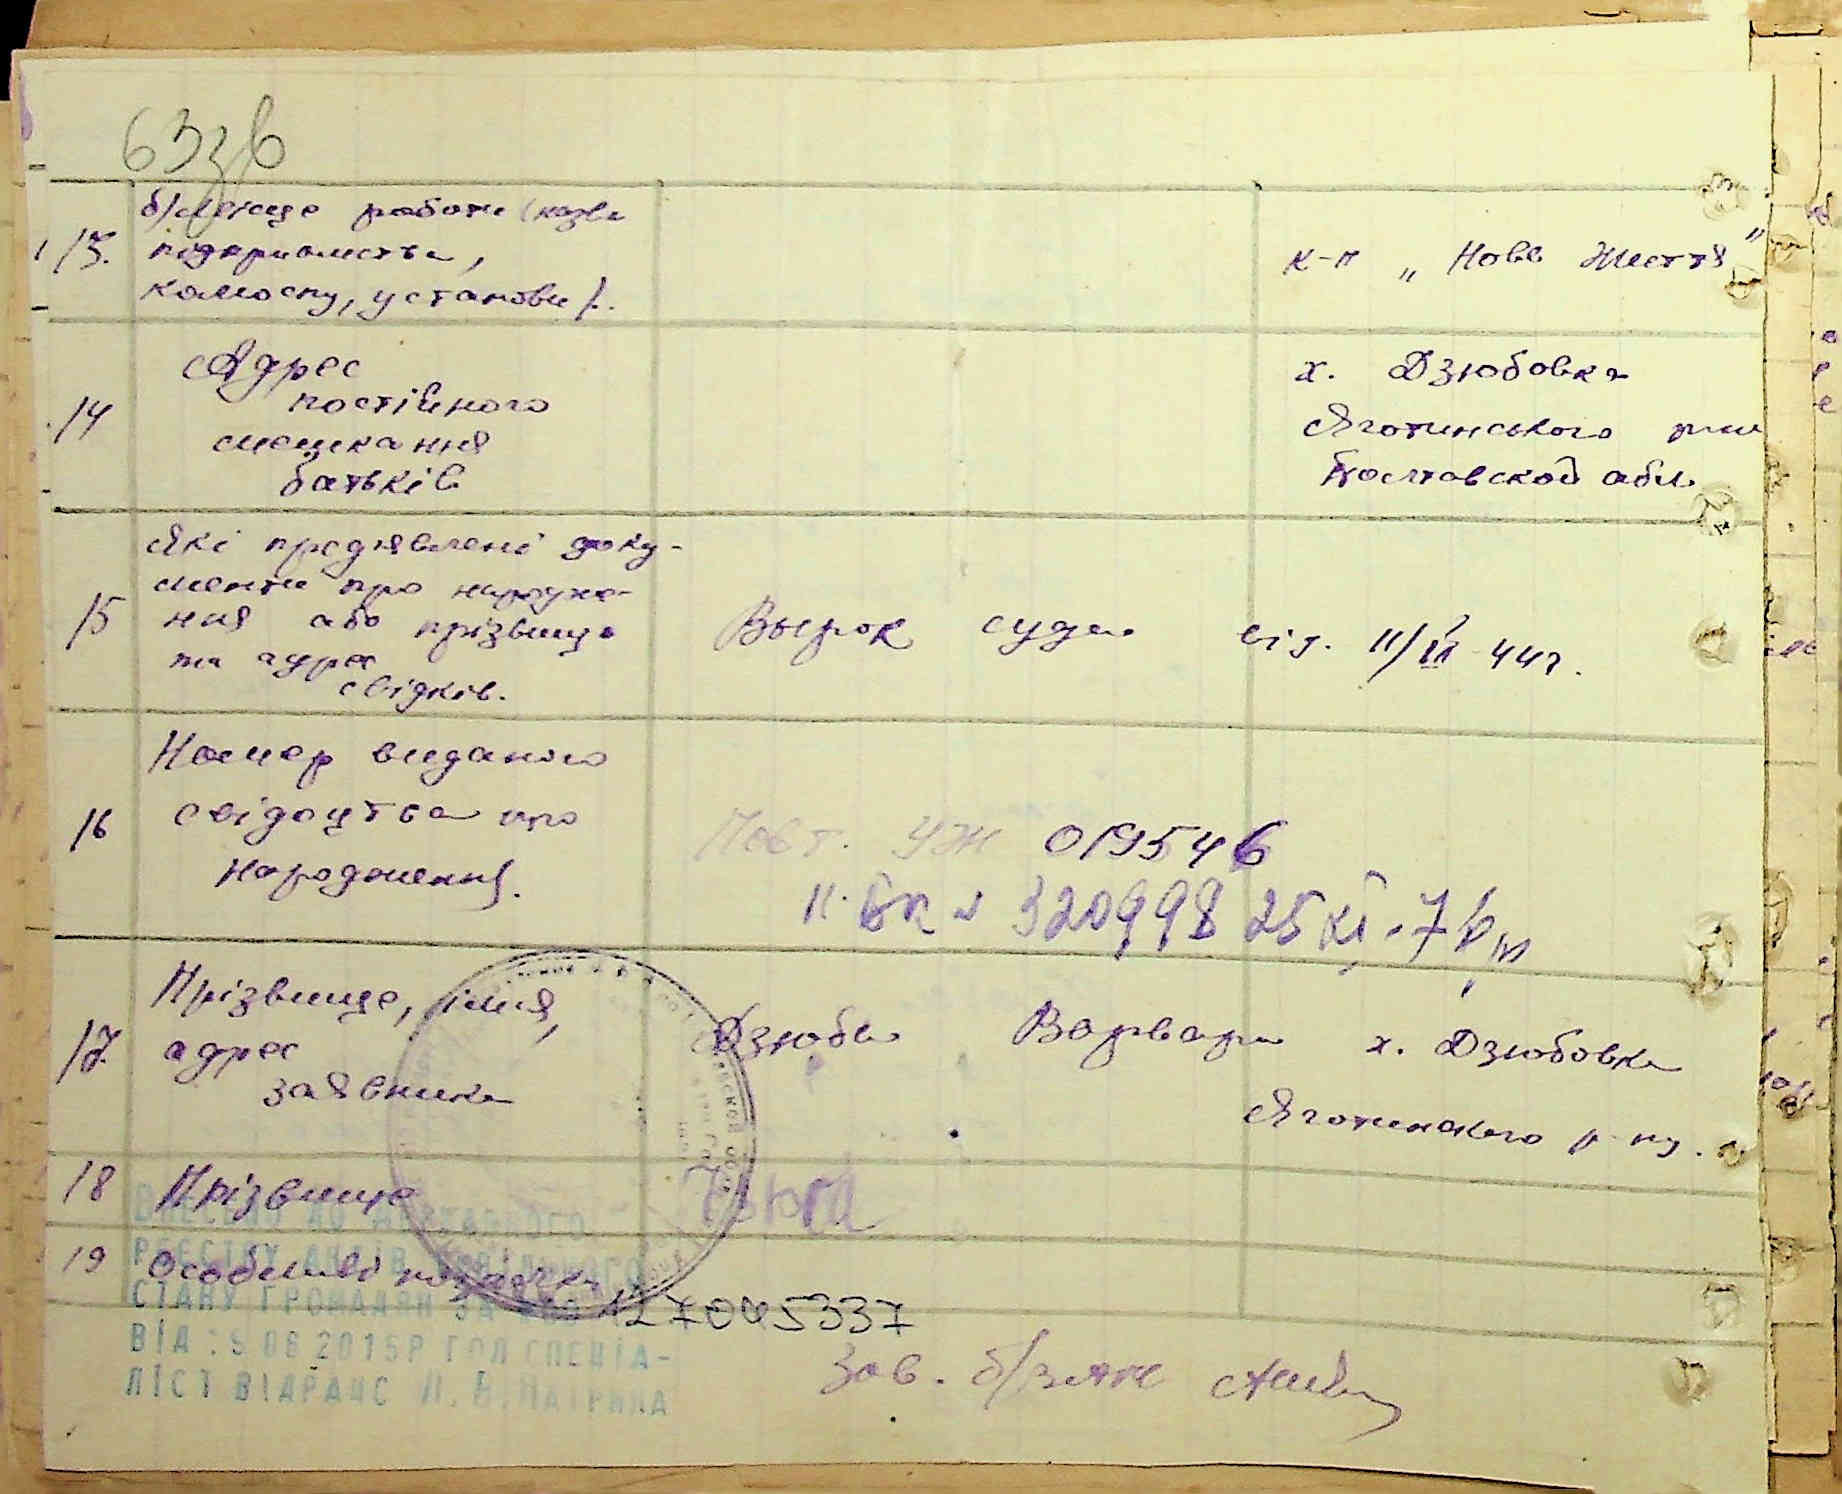 63зв
13. б/місце работи (назва
підприємства,
колгоспу, установи/.
к-п „Нове Життя"
14 Адрес
постійного
мешкання
батьків
х. Дзюбовка
Яготинського р-ну
Полтавской обл.
15 Які предявлені доку-
менти про народже-
ння або прізвище
та адрес
свідків.
Вырок суда від. 11/III 44г.
16 Номер виданого
свідоцтва про
народження.
Повт. УЖ 019546
320998 25
17. Прізвище, імня,
адрес
заявника
Дзюба Варвара х. Дзюбовка
Яготинского р-ну.
18 Прізвище
19 Особливі
ВНЕСЕНО ДО ДЕРЖАВНОГО
РЕЄСТРУ АКТІВ ЦИВІЛЬНОГО
СТАНУ ГРОМАДЯН ЗА
127045337
ВІД 2015Р ГОЛ СПЕЦІА-
ЛІСТ ВІДРАЦС
Зав. б/загс